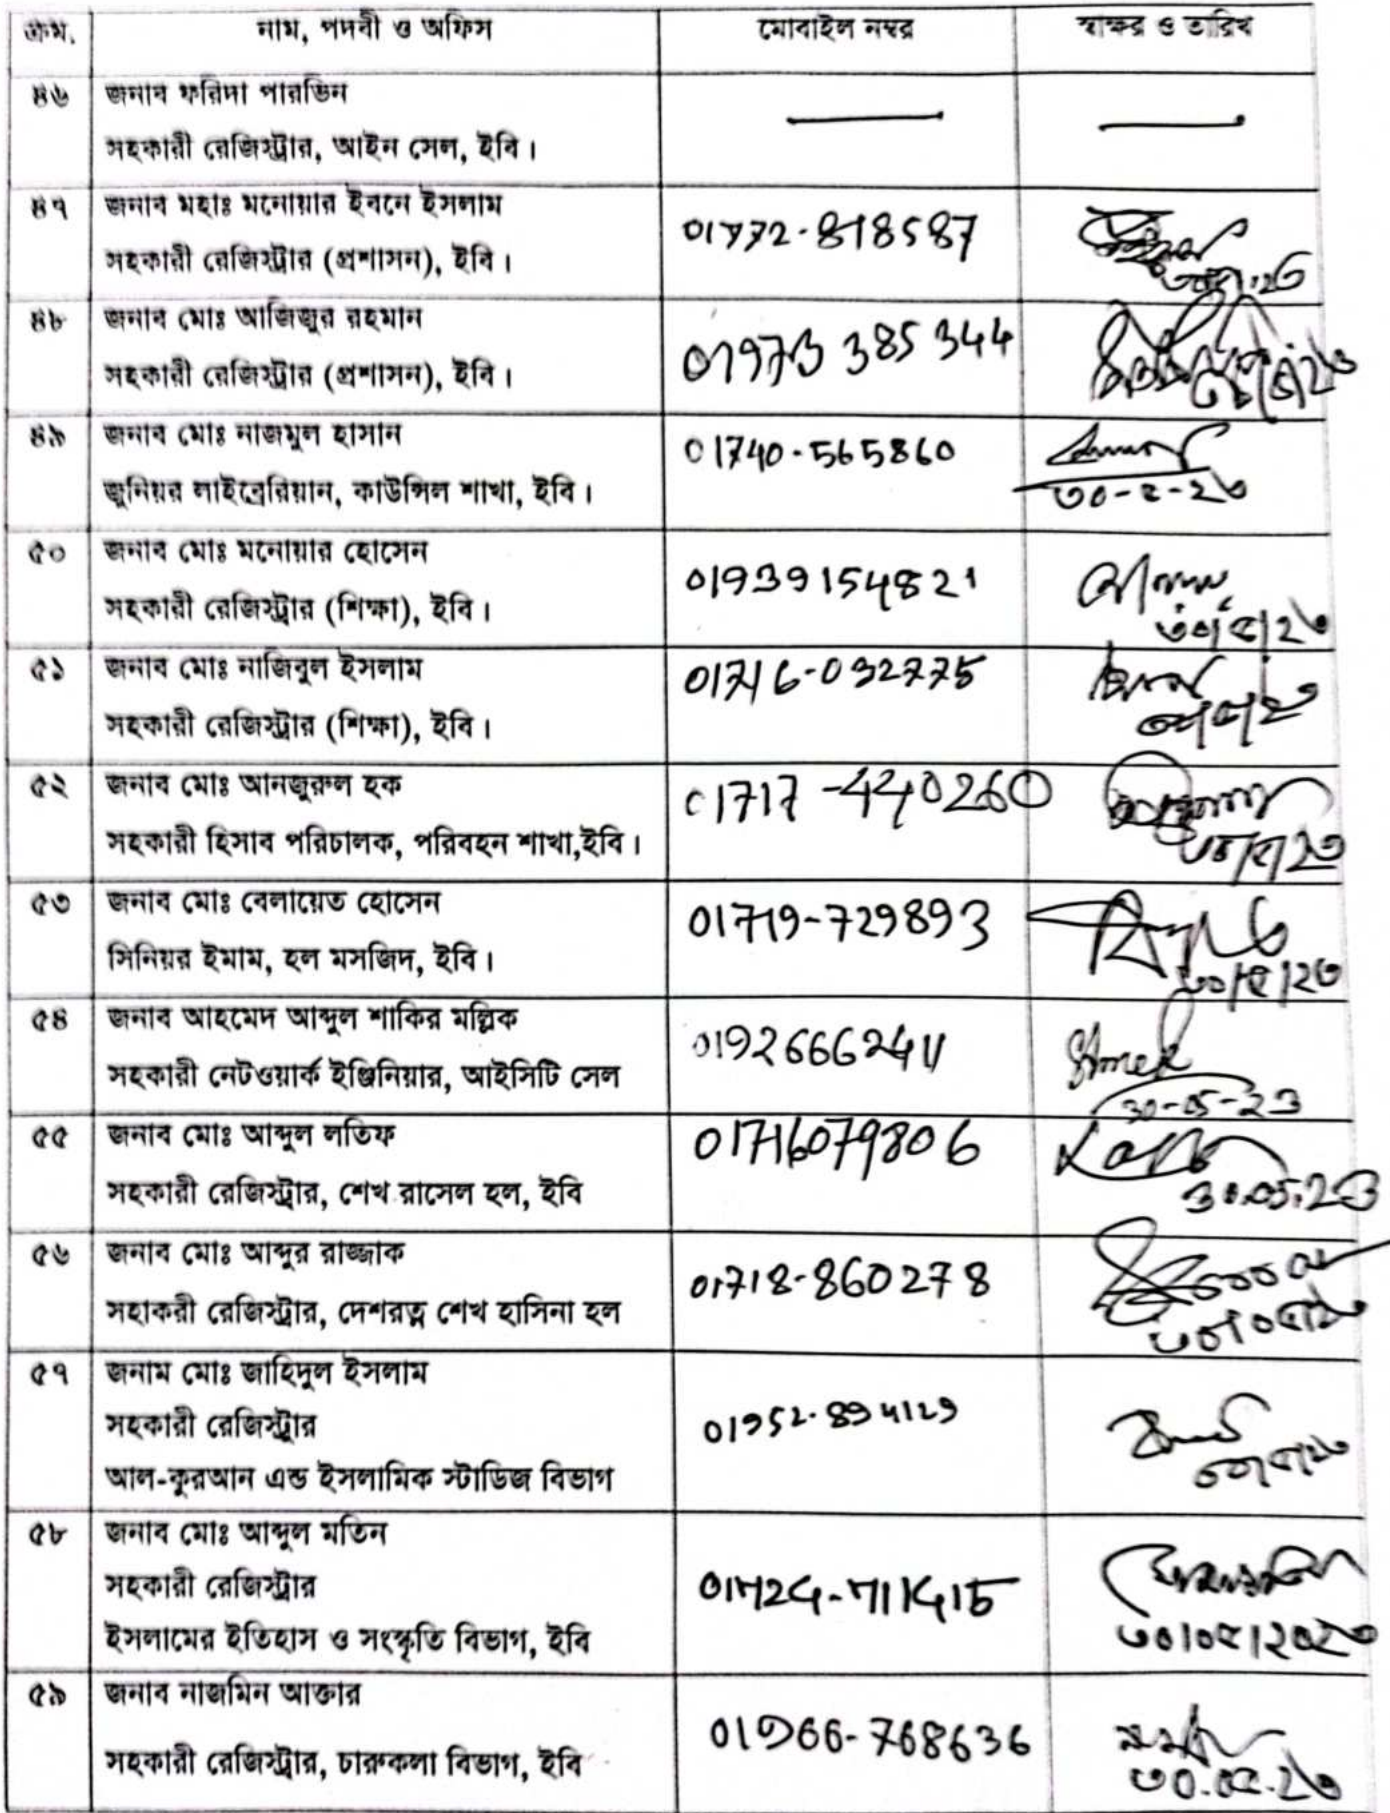 ক্রম. নাম, পদবী ও অফিস মোবাইল নম্বর স্বাক্ষর ও তারিখ
৪৬ জনাব ফরিদা পারভিন
সহকারী রেজিস্ট্রার, আইন সেল, ইবি।
৪৭ জনাব মহাঃ মনোয়ার ইবনে ইসলাম
সহকারী রেজিস্ট্রার (প্রশাসন), ইবি। 01772-818587
৪৮ জনাব মোঃ আজিজুর রহমান
সহকারী রেজিস্ট্রার (প্রশাসন), ইবি। 01973 385 344
৪৯ জনাব মোঃ নাজমুল হাসান
জুনিয়র লাইব্রেরিয়ান, কাউন্সিল শাখা, ইবি। 01740-565860
৩০-৫-২৩
৫০ জনাব মোঃ মনোয়ার হোসেন
সহকারী রেজিস্ট্রার (শিক্ষা), ইবি। 01939154821
৩০/৫/২৩
৫১ জনাব মোঃ নাজিবুল ইসলাম
সহকারী রেজিস্ট্রার (শিক্ষা), ইবি। 01716-032775
৫২ জনাব মোঃ আনজুরুল হক
সহকারী হিসাব পরিচালক, পরিবহন শাখা,ইবি। 01717-440260
৩০/৫/২৩
৫৩ জনাব মোঃ বেলায়েত হোসেন
সিনিয়র ইমাম, হল মসজিদ, ইবি। 01719-729893
৩০/৫/২৩
৫৪ জনাব আহমেদ আব্দুল শাকির মল্লিক
সহকারী নেটওয়ার্ক ইঞ্জিনিয়ার, আইসিটি সেল 01926662411
30-05-23
৫৫ জনাব মোঃ আব্দুল লতিফ
সহকারী রেজিস্ট্রার, শেখ রাসেল হল, ইবি 01716079806
30.05.23
৫৬ জনাব মোঃ আব্দুর রাজ্জাক
সহাকরী রেজিস্ট্রার, দেশরত্ন শেখ হাসিনা হল 01718-860278
৫৭ জনাম মোঃ জাহিদুল ইসলাম
সহকারী রেজিস্ট্রার
আল-কুরআন এন্ড ইসলামিক স্টাডিজ বিভাগ 01952-894129
৫৮ জনাব মোঃ আব্দুল মতিন
সহকারী রেজিস্ট্রার
ইসলামের ইতিহাস ও সংস্কৃতি বিভাগ, ইবি 01724-711415
৩০/০৫/২০২৩
৫৯ জনাব নাজমিন আক্তার
সহকারী রেজিস্ট্রার, চারুকলা বিভাগ, ইবি 01966-768636
৩০.০৫.২৩